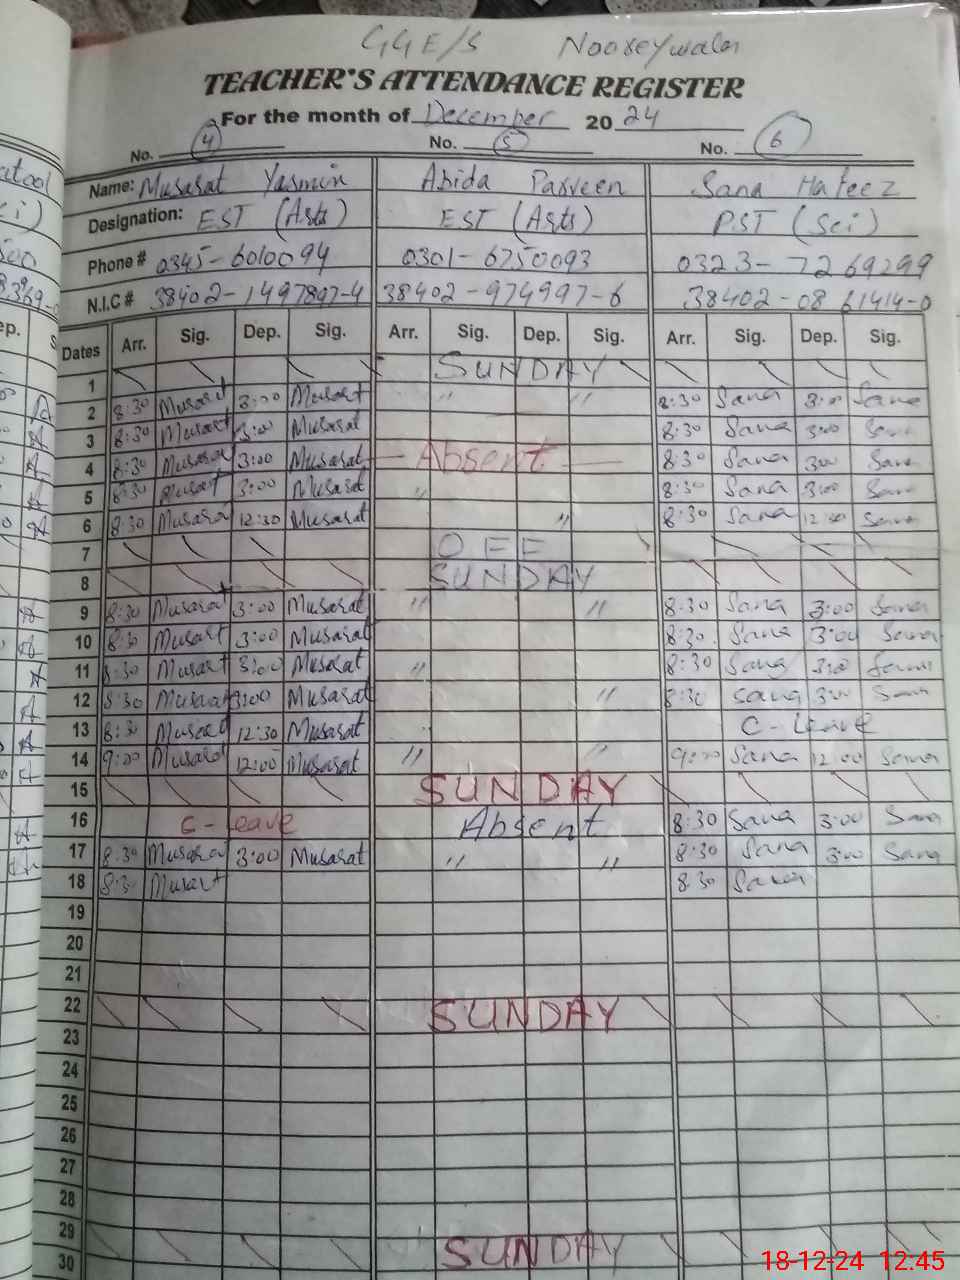 GGE/S Nooreywala
TEACHER'S ATTENDANCE REGISTER
For the month of December 2024
No. 4 No. 5 No. 6
Name: Musarat Yasmin Abida Parveen Sana Hafeez
Designation: EST (Arts) EST (Arts) PST (Sci)
Phone # 0345-6010094 0301-6750093 0323-7269299
N.I.C # 38402-1497897-4 38402-974997-6 38402-0861414-0
Dates Arr. Sig. Dep. Sig. Arr. Sig. Dep. Sig. Arr. Sig. Dep. Sig.
1 SUNDAY
2 8:30 Musarat 3:00 Musarat " " 8:30 Sana 3:00 Sana
3 8:30 Musarat 3:00 Musarat 8:30 Sana 3:00 Sana
4 8:30 Musarat 3:00 Musarat Absent 8:30 Sana 3:00 Sana
5 8:30 Musarat 3:00 Musarat " 8:30 Sana 3:00 Sana
6 8:30 Musarat 12:30 Musarat " 8:30 Sana 12:30 Sana
7 OFF
8 SUNDAY
9 8:30 Musarat 3:00 Musarat " " 8:30 Sana 3:00 Sana
10 8:30 Musarat 3:00 Musarat 8:30 Sana 3:00 Sana
11 8:30 Musarat 3:00 Musarat " 8:30 Sana 3:00 Sana
12 8:30 Musarat 3:00 Musarat " 8:30 Sana 3:00 Sana
13 8:30 Musarat 12:30 Musarat C-Leave
14 9:00 Musarat 12:00 Musarat " " 9:00 Sana 12:00 Sana
15 SUNDAY
16 C-leave Absent 8:30 Sana 3:00 Sana
17 8:30 Musarat 3:00 Musarat " " 8:30 Sana 3:00 Sana
18 8:30 Musarat 8:30 Sana
19
20
21
22 SUNDAY
23
24
25
26
27
28
29 SUNDAY
30
18-12-24 12.45